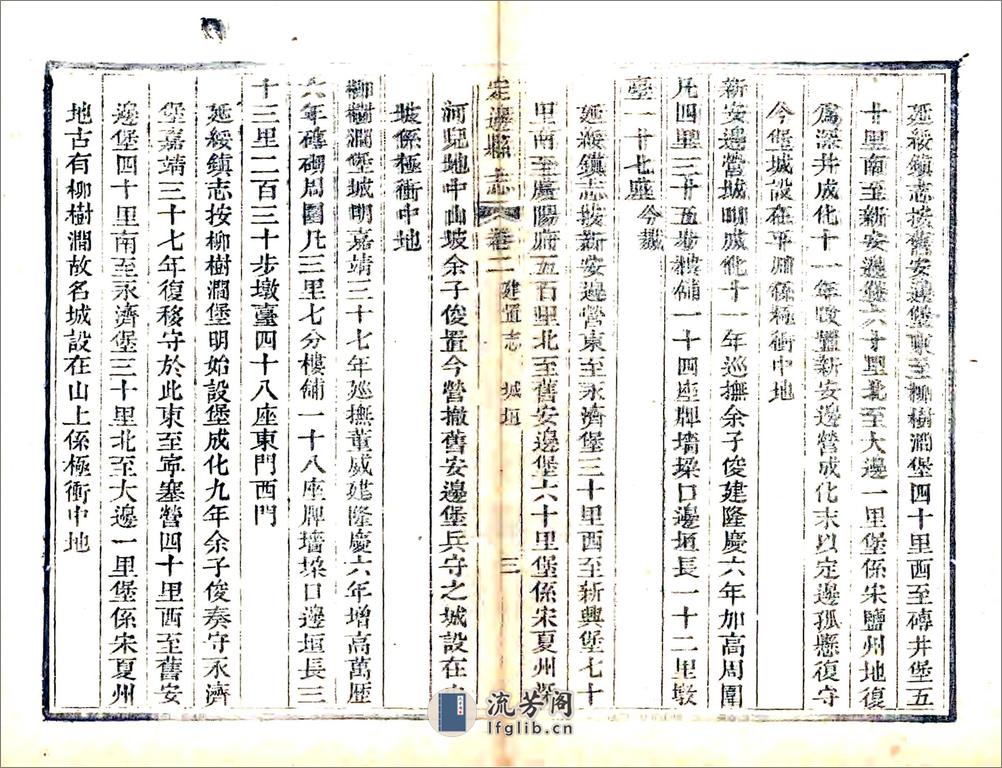 延綏鎮志按舊安邊堡東至柳樹澗堡四十里西至磚井堡五
十里南至新安邊營六十里北至大邊一里堡係宋鹽州地復
爲深井成化十一年改置新安邊營成化末以定邊孤懸復守
今堡城設在平川係極衝中地
新安邊營城明成化十一年巡撫余子俊建隆慶六年加高周圍
凡四里三十五步樓鋪一十四座牌墻垜口邊垣長一十二里墩
臺一十七座今裁
延綏鎮志按新安邊營東至永濟堡三十里西至新興堡七十
里南至慶陽府五百里北至舊安邊堡六十里堡係宋夏州
定邊縣志 卷二 建置志 城垣 三
河兒地中山坡余子俊置今營撤舊安邊堡兵守之城設在
坡係極衝中地
柳樹澗堡城明嘉靖三十七年廵撫董威建隆慶六年增高萬歷
六年磚砌周圍凡三里七分樓鋪一十八座牌墻垜口邊垣長三
十三里二百三十步墩臺四十八座東門西門
延綏鎮志按柳樹澗堡明始設堡成化九年余子俊奏守永濟
堡嘉靖三十七年復移守於此東至寧塞營四十里西至舊安
邊堡四十里南至永濟堡三十里北至大邊一里堡係宋夏州
地古有柳樹澗故名城設在山上係極衝中地
流芳阁
lfglib.cn